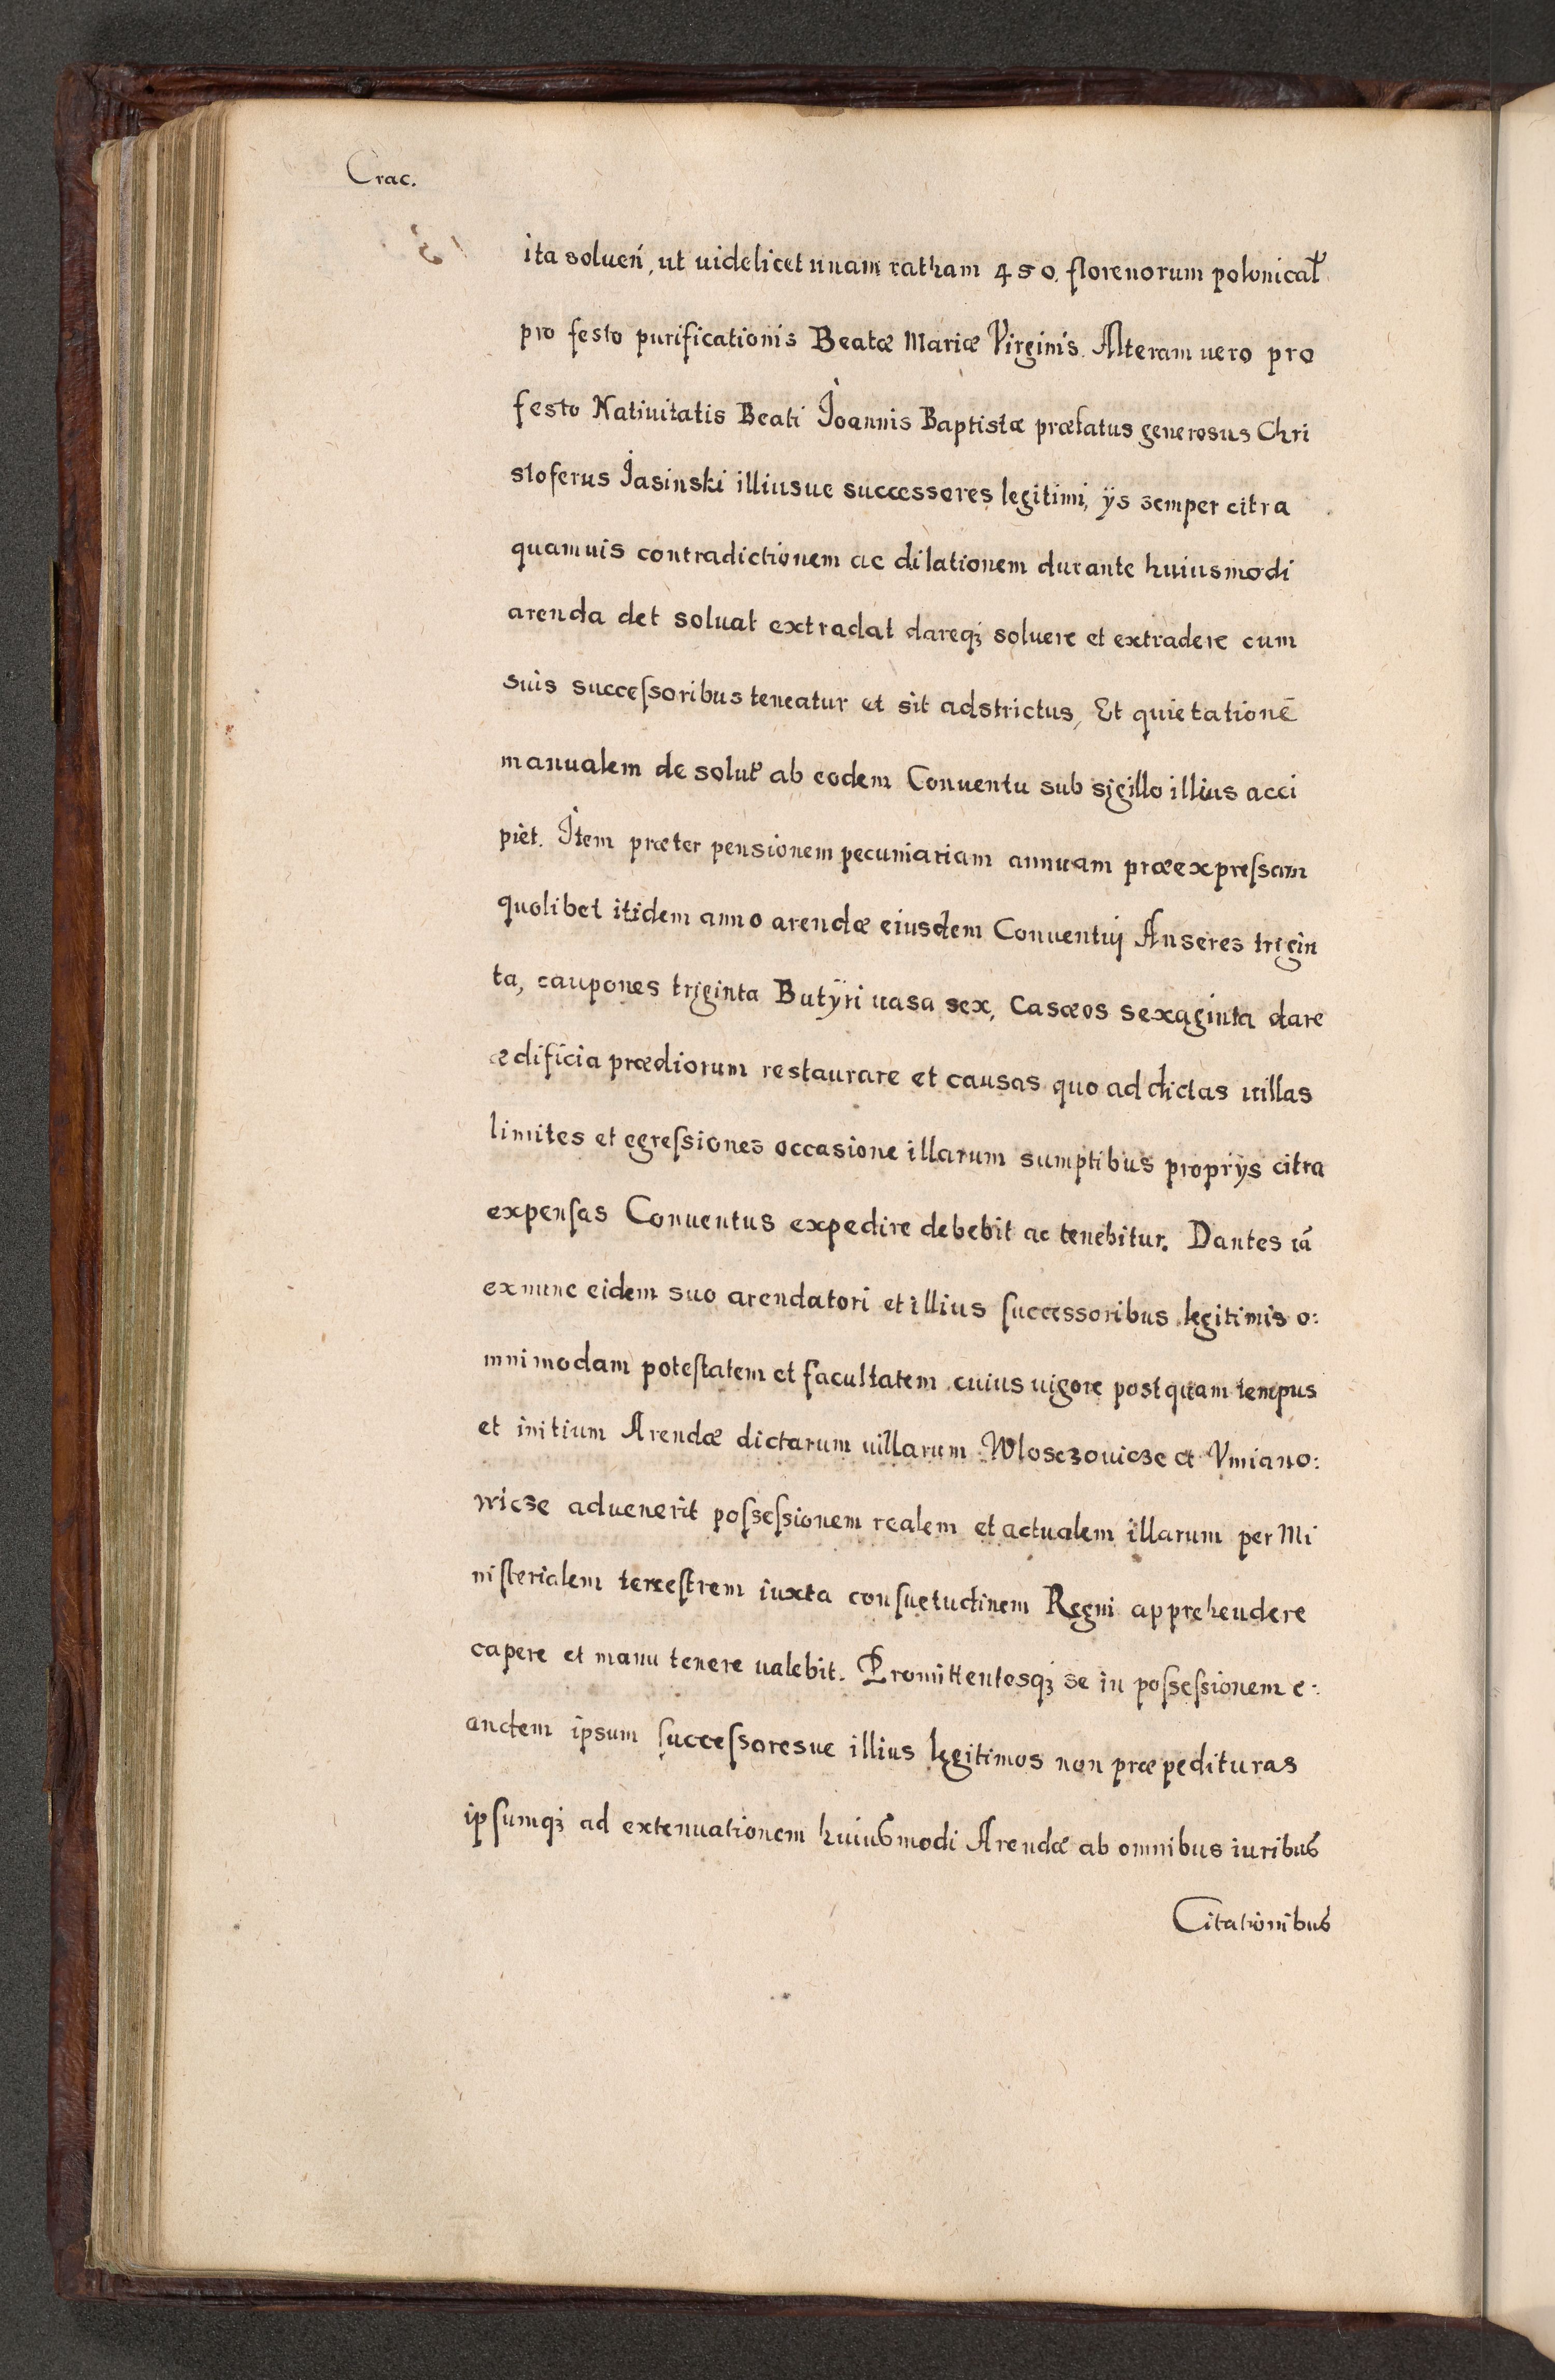 Crac.
ita soluen̄, ut uidelicet unam ratham 450. florenorum polonical̃
pro festo purificationis Beatæ Mariæ Virginis. Alteram uero pro
festo Natiuitatis Beati Joannis Baptistæ præfatus generosus Chri
stoferus Jasinski illiusue successores legitimi, ÿs semper citra
quamuis contradictionem ac dilationem durante huiusmodi
arenda det soluat extradat dareqꜣ soluere et extradere cum
suis succeſsoribus teneatur et sit adstrictus, Et quietationē
manualem de solut̃ ab eodem Conuentu sub sigillo illius acci
piet. Item præter pensionem pecuniariam annuam præexpreſsam
quolibet itidem anno arendæ eiusdem Conuentuj Anseres trigin
ta, caupones triginta Butÿri uasa sex, Casæos sexaginta dare
ædificia prædiorum restaurare et causas quo ad dictas uillas
limites et egreſsiones occasione illarum sumptibus proprÿs citra
expenſas Conuentus expedire debebit ac tenebitur. Dantes iā
ex nunc eidem suo arendatori et illius ſuccessoribus legitimis o:
mnimodam poteſtatem et facultatem cuius uigore postquam tempus
et initium Arendæ dictarum uillarum Wlosczouicze et Vmiano:
wicze aduenerit poſseſsionem realem et actualem illarum per Mi
niſterialem terreſtrem iuxta conſuetudinem Regni apprehendere
capere et manu tenere ualebit. Promittentesqꜣ se in poſseſsionem e:
andem ipsum ſucceſsoresue illius legitimos non præpedituras
ipſumqꜣ ad extenuationem huiusmodi Arendæ ab omnibus iuribus
Citationibus